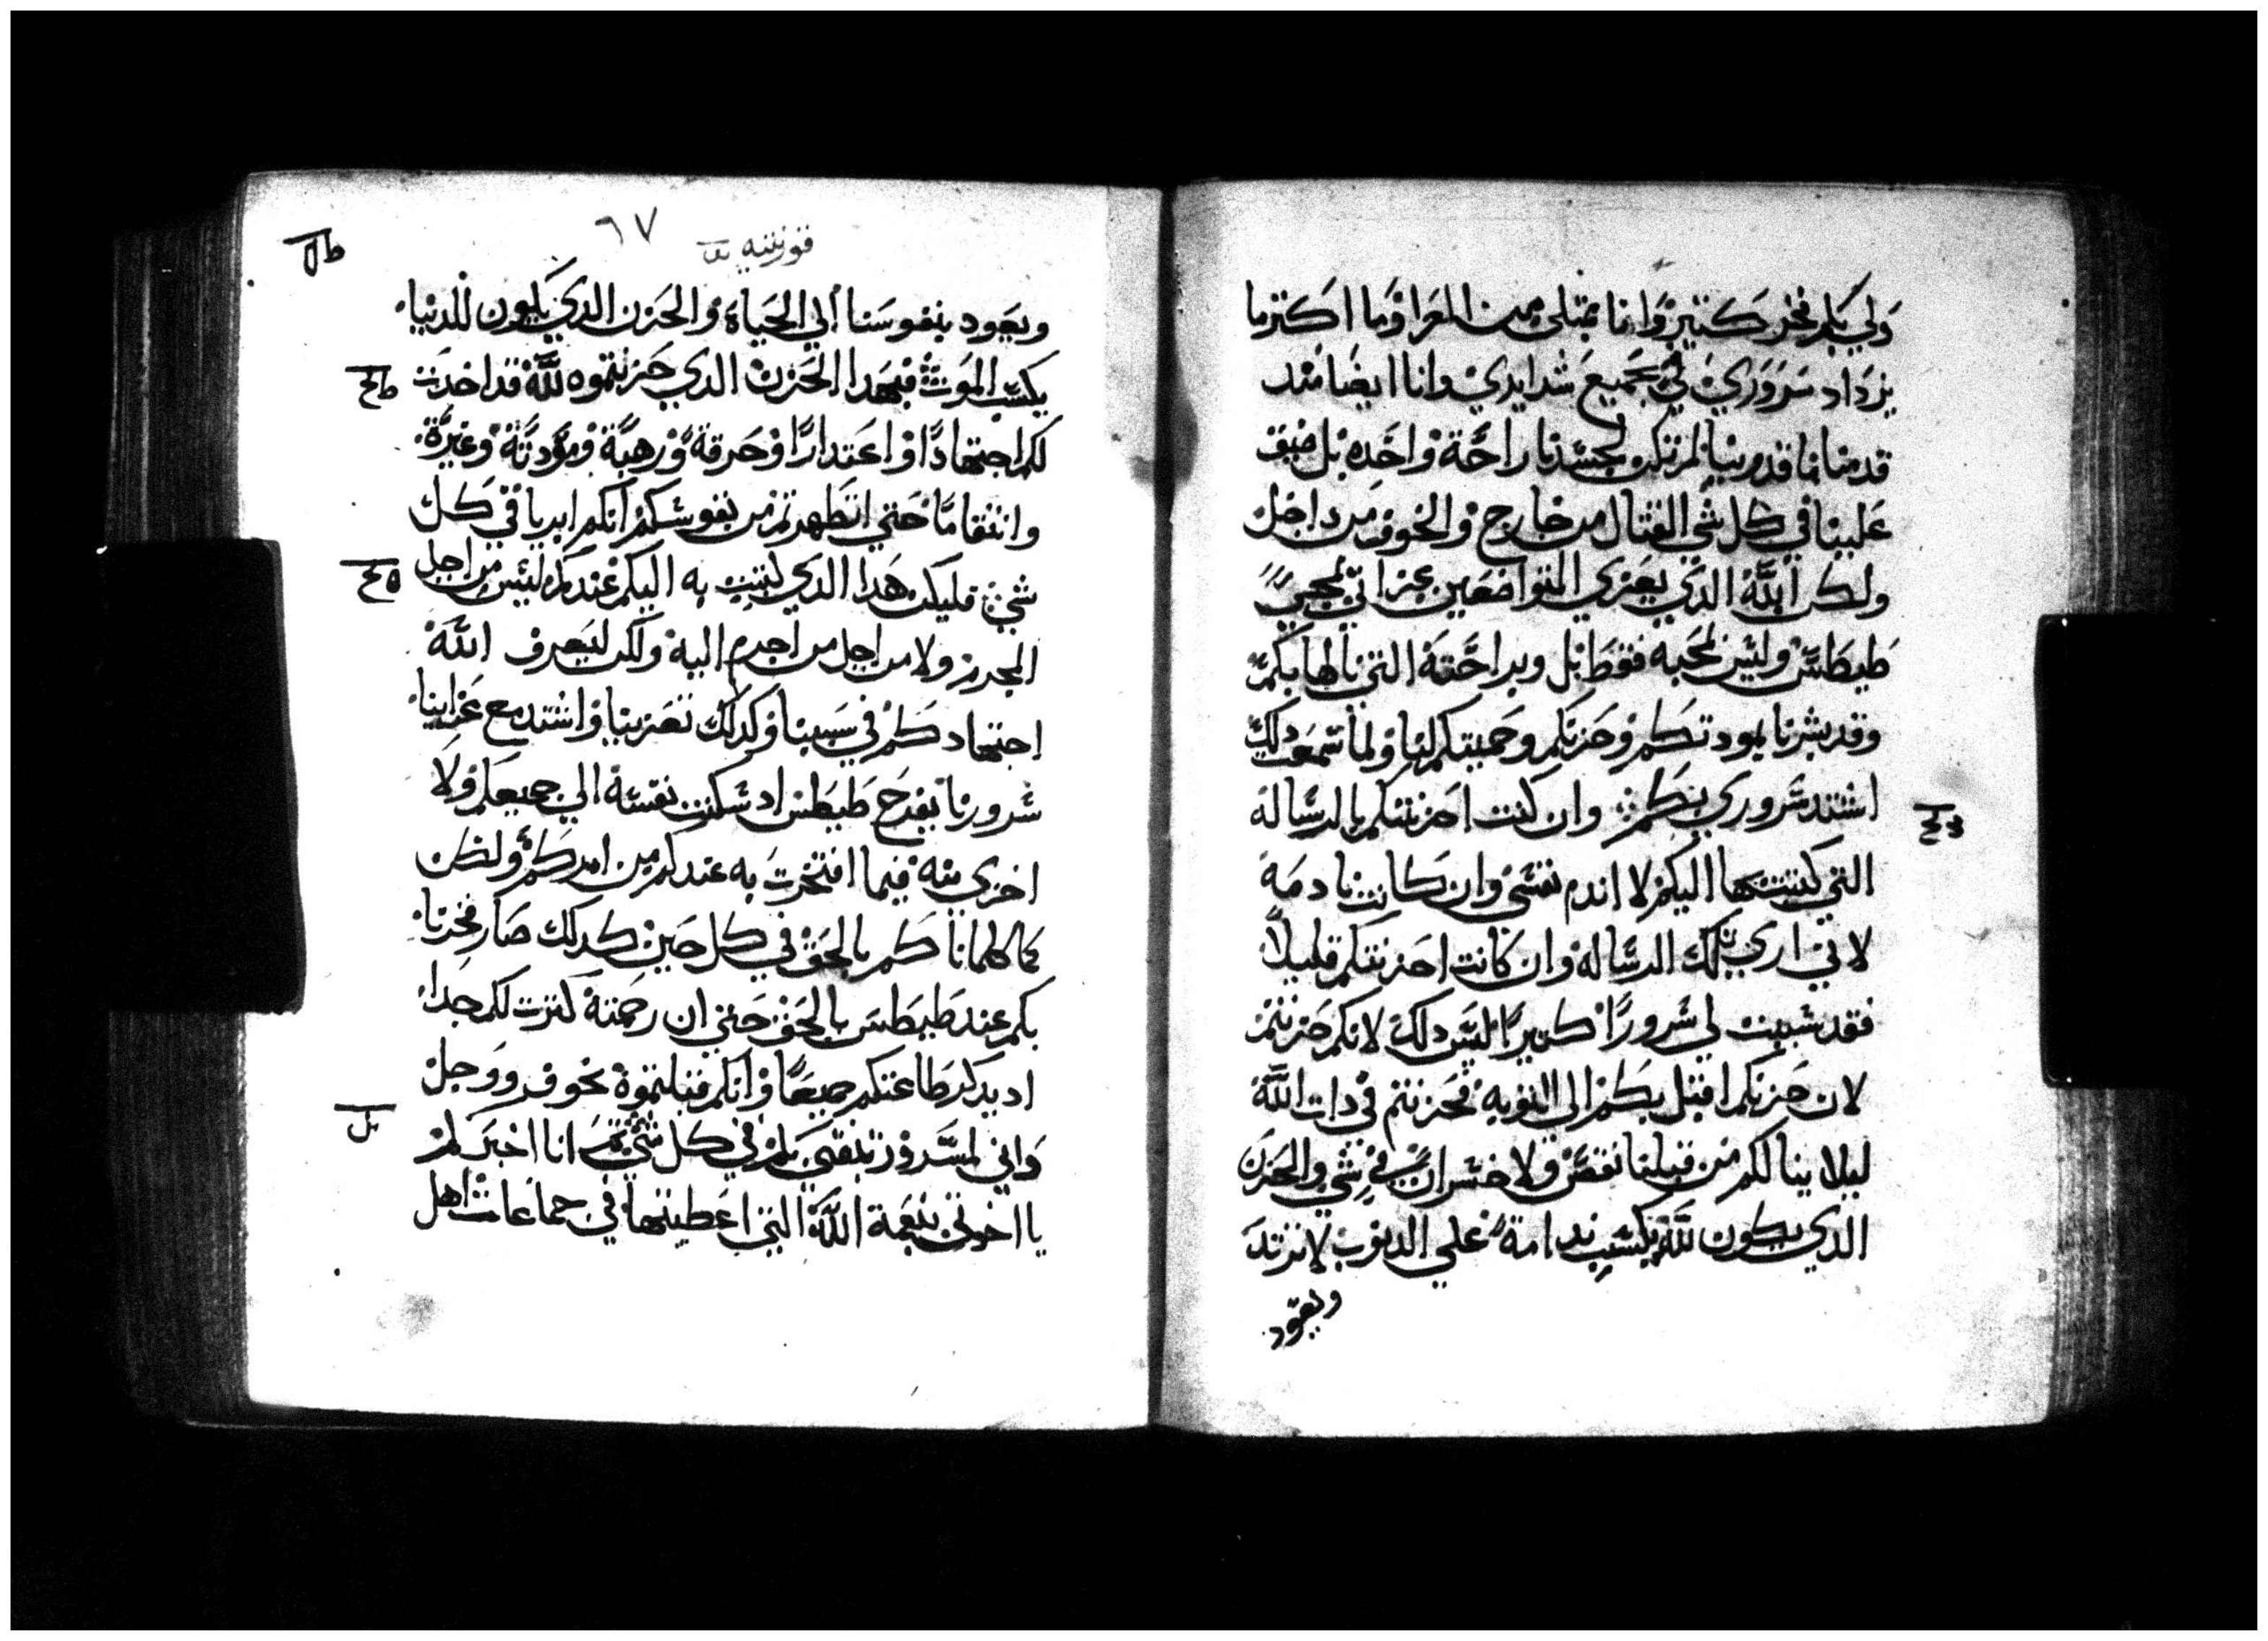 ولي بكم فخر كثير وانا ممتلي من العزا وما اكثر ما
يزداد سروري في جميع شدايدي وانا ايضا منذ
قدمنا ماقدونيا لم تكن لجسدنا راحة واحده بل ضيق
علينا في كل شي القتال من خارج والخوف من داخل
ولكن الله الذي يعزي المتواضعين عزاني بمجي
طيطس وليس بمجيه فقط بل وبراحته التي نالها بكم
وقد بشرنا بمودتكم وحزنكم وحميتكم لنا ولما سمعت دلك
اشتد سروري بكم وان كنت احزنتكم بالرساله
التي كتبتها اليكم لا اندم نفسي وان كانت نادمة
لاني اري تلك الرساله وان كانت احزنتكم قليلاً
فقد سببت لي سروراً كبيراً ليس دلك لانكم حزنتم
لان حزنكم اقبل بكم الي التوبه فحزنتم في دات الله
ليلا ينالكم من قبلنا نقص ولا خسران في شي والحزن
الدي يكون لله يكسب ندامة علي الدنوب لا ترتد
ويعود
٦٧
ويعود بنفوسنا الي الحياة والحزن الدي يكون للدنيا
يكسب الموت فبهدا الحزن الدي حزنتموه لله قد اخدت
لكم اجتهاداً واعتداراً وحرقة ورهبة ومودة وغيرة
وانتقاماً حتي اتطهرتم من نفوسكم انكم ابريا في كل
شي فليكن هدا الدي كتبت به اليكم عندكم ليس من اجل
المجرم ولا من اجل من اجرم اليه ولكن ليعرف الله
اجتهادكم في سببنا وكدلك تعزينا واشتد مع عزاينا
سرورنا بفرح طيطس اد سكنت نفسه الي جميعكم ولا
اخزي منه فيما افتخرت به عندكم من امركم ولكن
كما كلمناكم بالحق في كل حين كدلك صار فخرنا
بكم عند طيطس بالحق حتي ان رحمته كثرت لكم جدا
اد يدكر طاعتكم جميعاً وانكم قبلتموه بخوف ووجل
واني لمسرور بثقتي بكم في كل شي انا اخبركم
يا اخوتي بنعمة الله التي اعطيتها في جماعات اهل